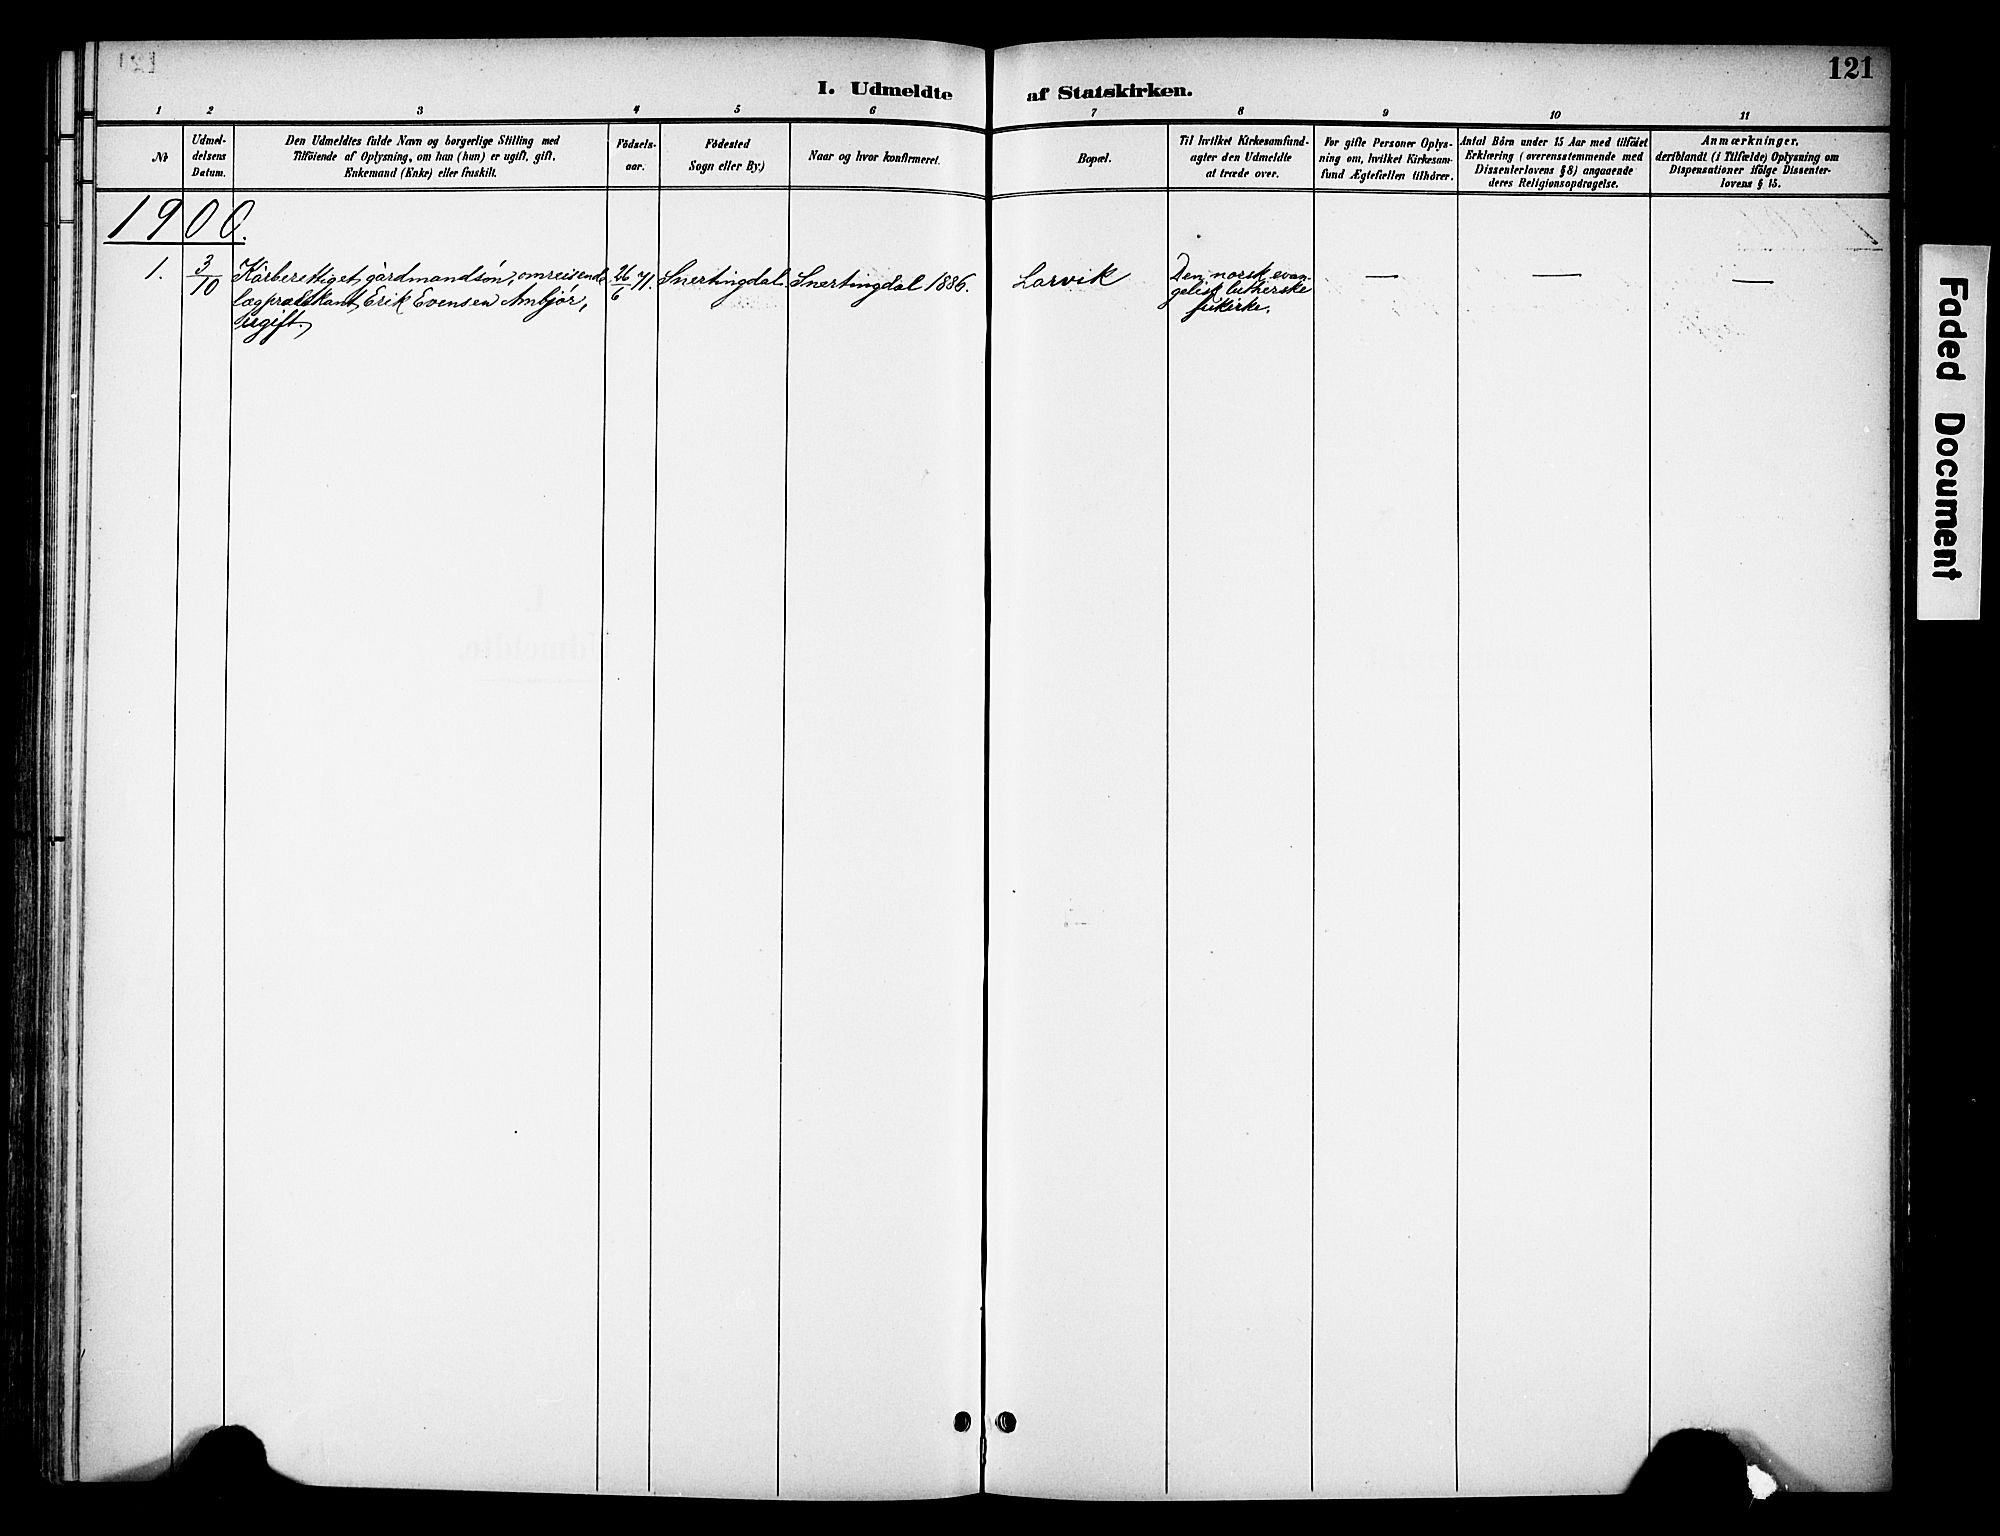 121
I. Udmeldte af Statskirken.
1 2 3 4 5 6 7 8 9 10 11
No
Udmel-
delsens
Datum.
Den Udmeldtes fulde Navn og borgerlige Stilling med
Tilföiende af Oplysning, om han (hun) er ugift, gift,
Enkemand (Enke) eller fraskilt.
Födsels-
aar.
Födested
Sogn eller By.)
Naar og hvor konfirmeret.
Bopæl.
Til hvilket Kirkesamfund-
agter den Udmeldte
at træde over.
For gifte Personer Oplys-
ning om, hvilket Kirkesam-
fund Ægtefællen tilhörer.
Antal Börn under 15 Aar med tilföiet
Erklæring (overensstemmende med
Dissenterlovens § 8) angaaende
deres Religionsopdragelse.
Anmærkninger,
deriblandt (i Tilfælde) Oplysning om
Dispensationer ifölge Dissenter-
lovens § 15.
1900.
1.
3/10
Kårberettiget gårdmandsön, omreisende
lægprædikant Erik Evensen Ambjör,
ugift.
26/6 71.
Snertingdal.
Snertingdal 1886.
Larvik
Den norsk evan-
gelisk lutherske
frikirke.
—
—
—
Faded Document